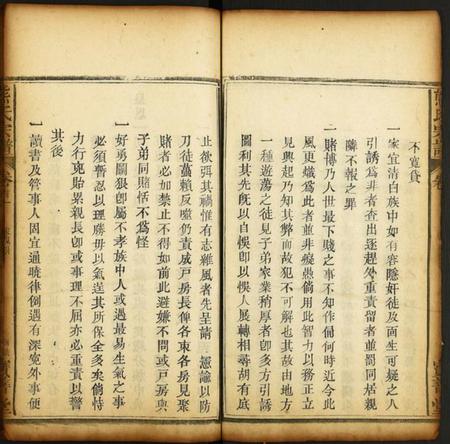 不寬貸
一家宜清白族中如有容隱奸徒及面生可疑之人
引誘爲非者查出逐趕外重責留者並罰同居親
隣不報之罪
一賭博乃人世最下賤之事不知作俑何時近今此
風更熾爲此者並非癡愚倘用此智力以務正立
見興起乃知其弊而故犯不可解也其故由地方
一種遊蕩之徒見子弟家業稍厚者卽多方引誘
圖利其先既以自悞卽以悞人展轉相尋胡有底
止欲弭其禍惟有志維風者先呈請 憲諭以防
刀徒蔑賴反噬仍責成戸房長俾各束各房見聚
賭者必如禁止不得如前此避嫌不問或戸房與
子弟同賭恬不爲怪
一好勇鬬狠卽屬不孝族中人或遇最易生氣之事
必須暫忍以理勝毋以氣逞其所保全多矣倘恃
力行兇貽累親長卽或事理不屈亦必重責以警
其後
一讀書及管事人固宜通曉律例遇有深寃外事便
熊氏宗譜
卷
堂